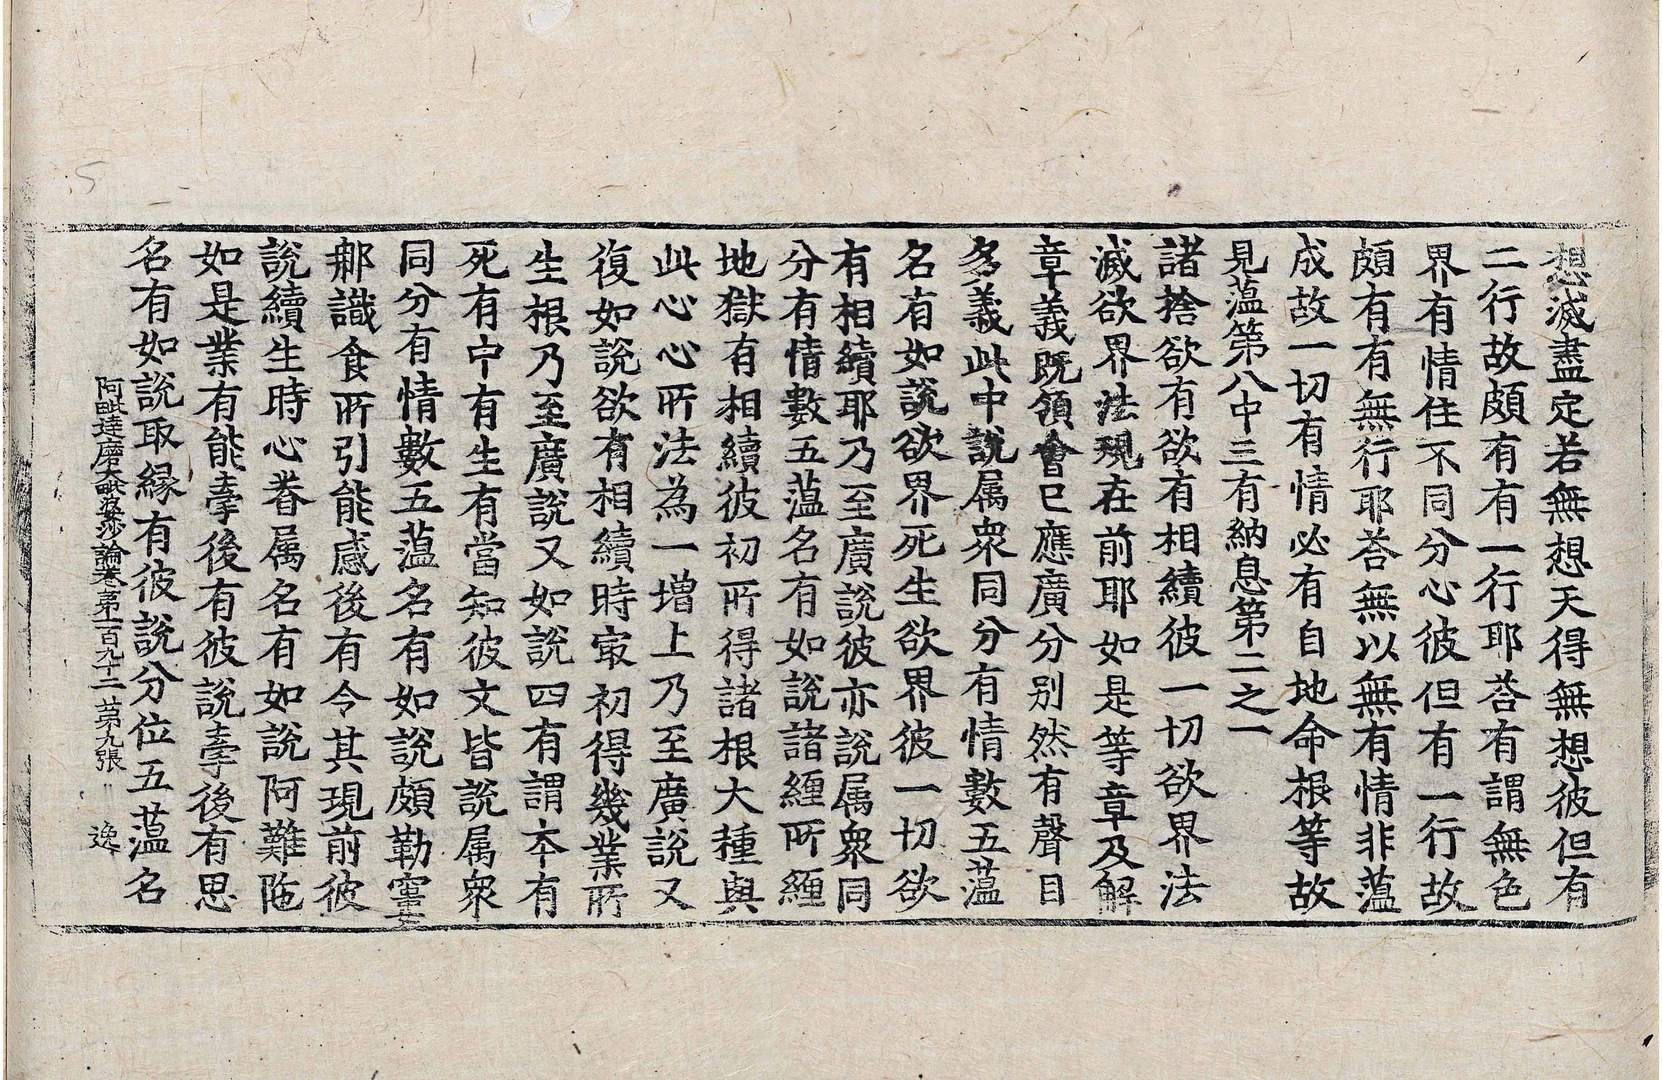 想滅盡定若無想天得無想彼但有
二行故頗有有一行耶荅有謂無色
界有情住不同分心彼但有一行故
頗有有無行耶荅無以無有情非薀
成故一切有情必有自地命根等故
見薀第八中三有納息第二之一
諸捨欲有欲有相續彼一切欲界法
滅欲界法現在前耶如是等章及解
章義既領會已應廣分别然有聲目
多義此中說属衆同分有情數五薀
名有如說欲界死生欲界彼一切欲
有相續耶乃至廣說彼亦說属衆同
分有情數五薀名有如說諸纏所纏
地獄有相續彼初所得諸根大種與
此心心所法為一增上乃至廣說又
復如說欲有相續時㝡初得幾業所
生根乃至廣說又如說四有謂夲有
死有中有生有當知彼文皆說属衆
同分有情數五薀名有如說頗勒窶
那識食所引能感後有令其現前彼
說續生時心眷属名有如說阿難陁
如是業有能牽後有彼說牽後有思
名有如說取縁有彼說分位五薀名
阿毗達磨大毗婆沙論卷第一百九十二 苐九張 逸
5